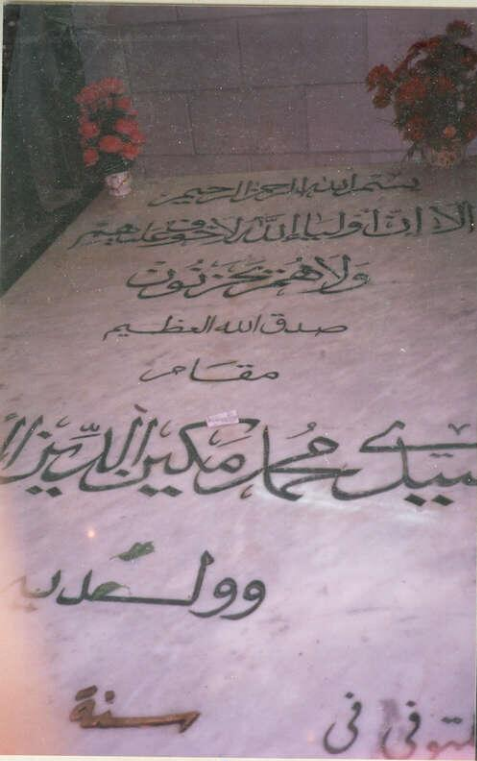 بسم الله الرحمن الرحيم
ألا إن أولياء الله لا خوف عليهم
ولا هم يحزنون
صدق الله العظيم
مقام
سيدى محمد مكين الدين
وولديه
المتوفى فى سنة